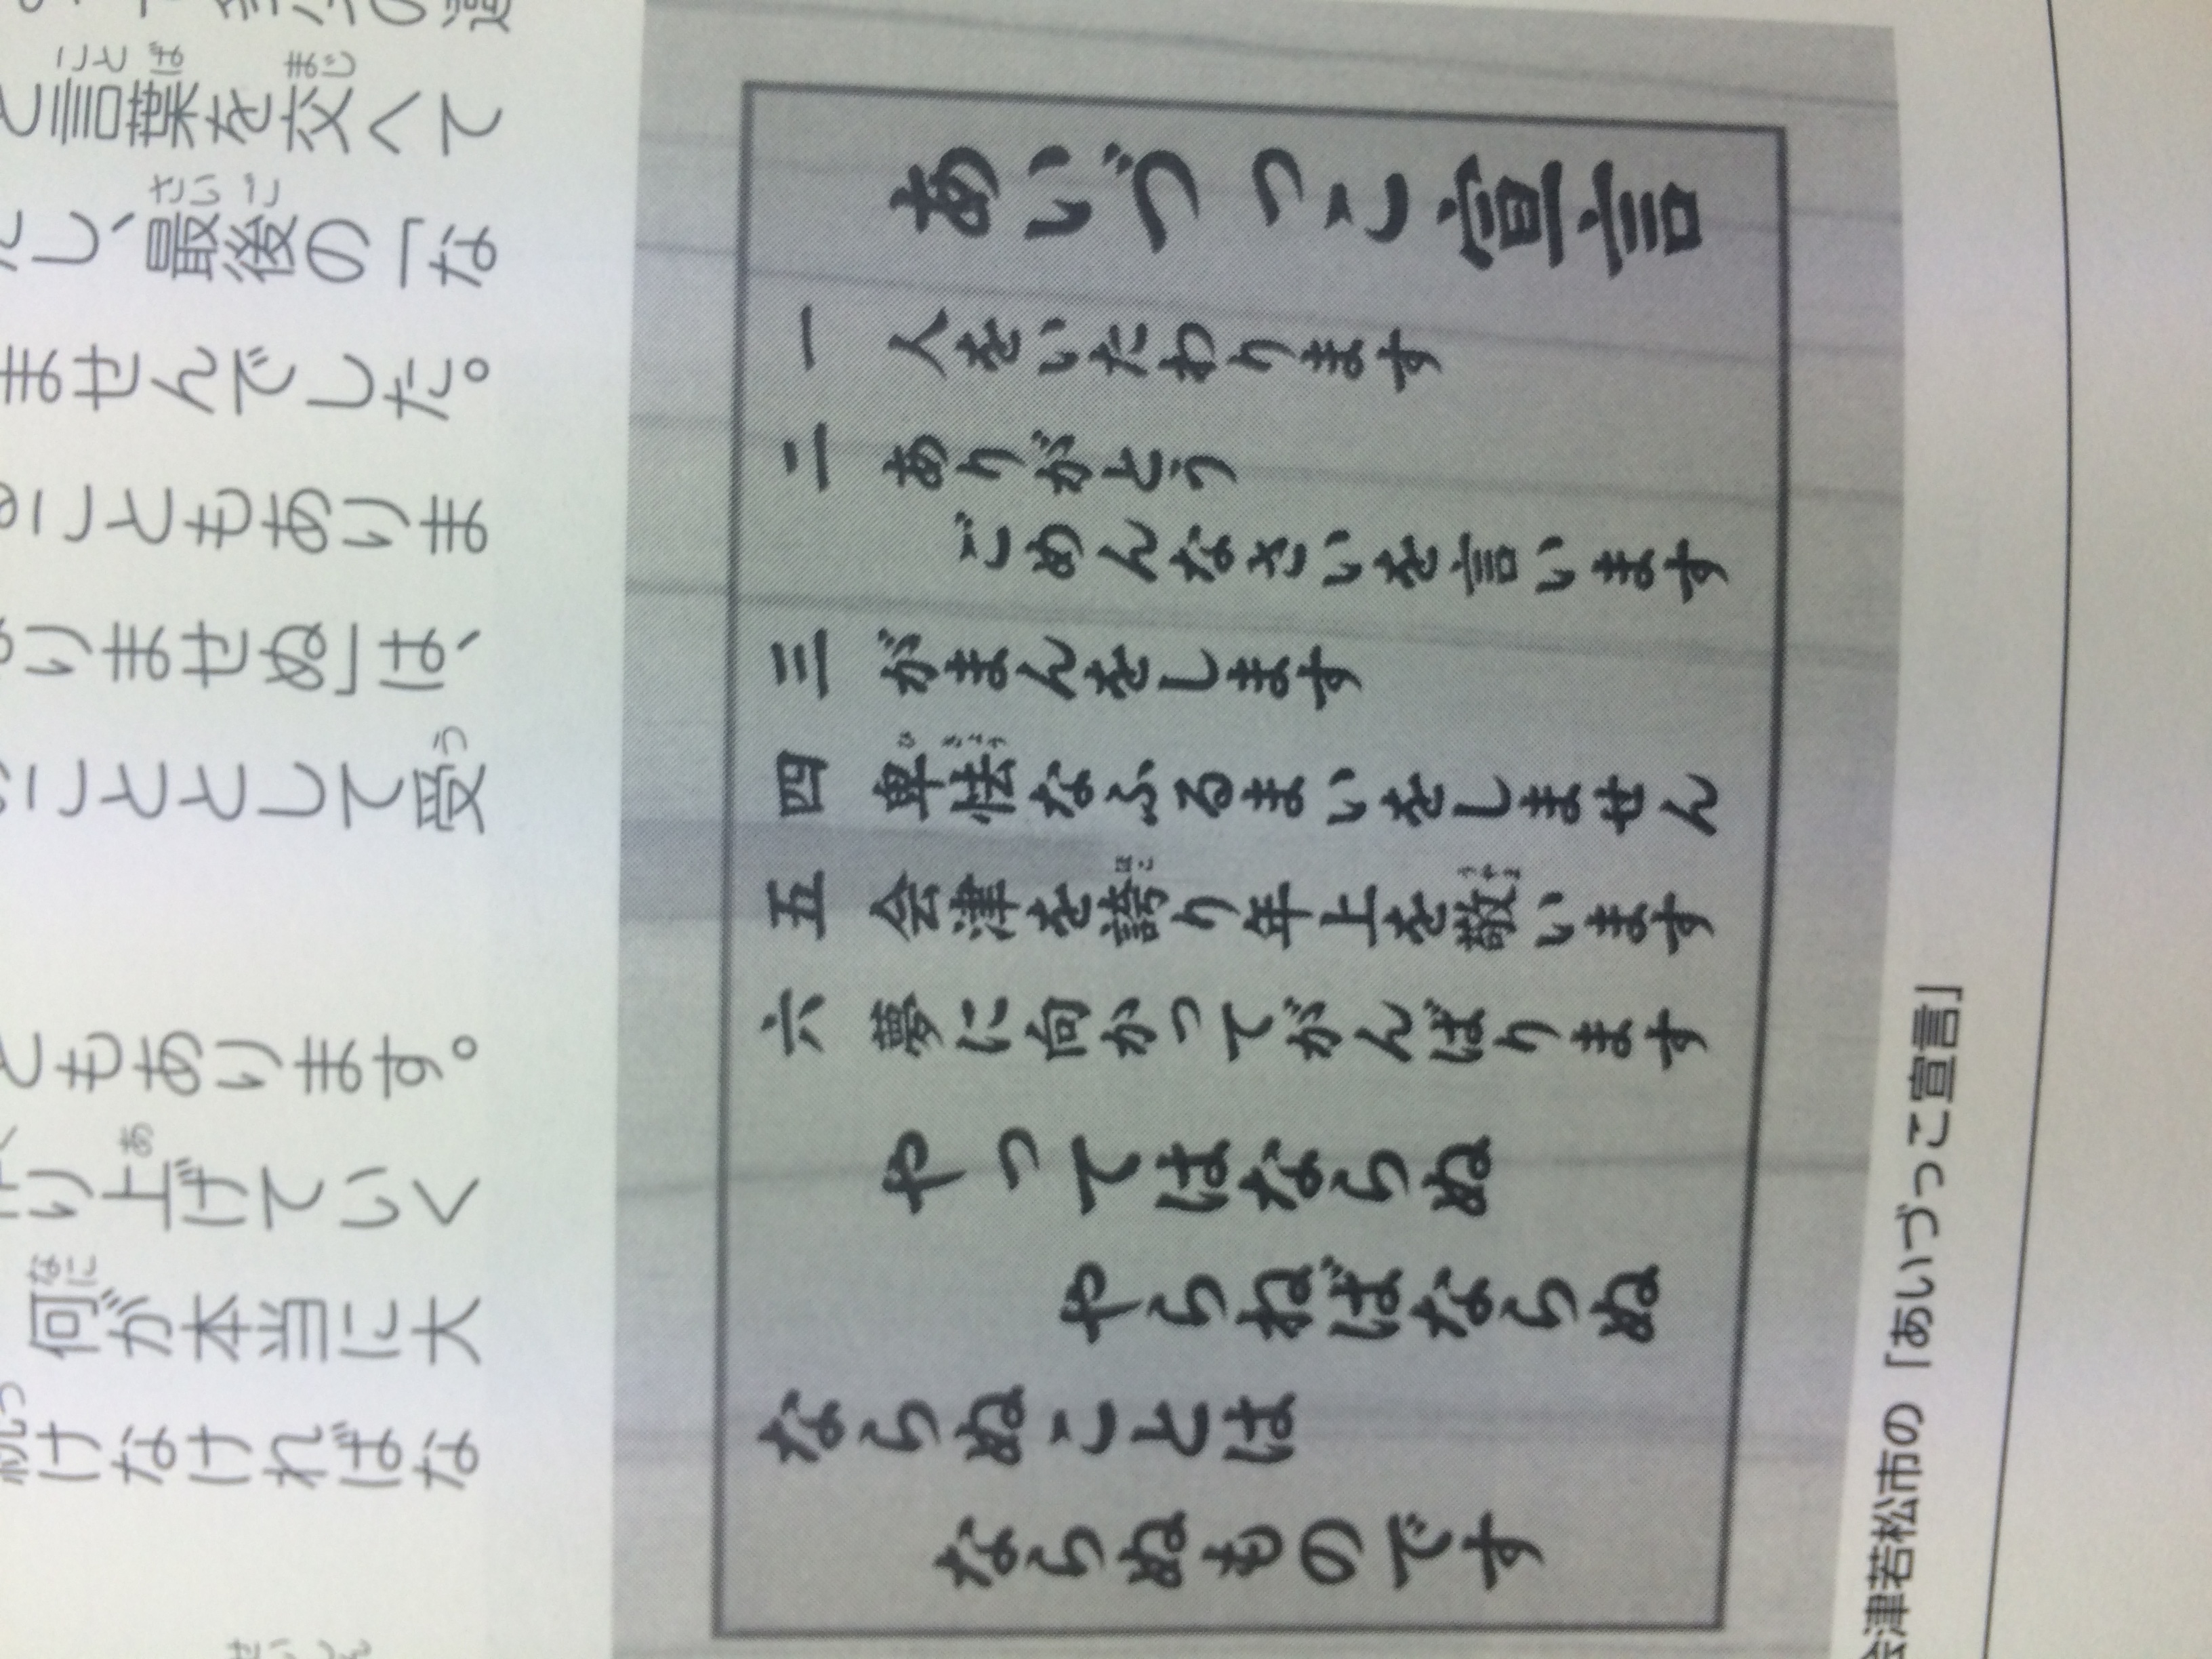 と言葉を交へて
し、最後の「な
ませんでした。
ることもありま
りませぬ」は、
こととして受
ともあります。
り上げていく
何が本当に大
けなければな
あいづっこ宣言
一 人をいたわります
二 ありがとう
ごめんなさいを言います
三 がまんをします
四 卑怯なふるまいをしません
五 会津を誇り年上を敬います
六 夢に向かってがんばります
やってはならぬ
やらねばならぬ
ならぬことは
ならぬものです
会津若松市の「あいづっこ宣言」